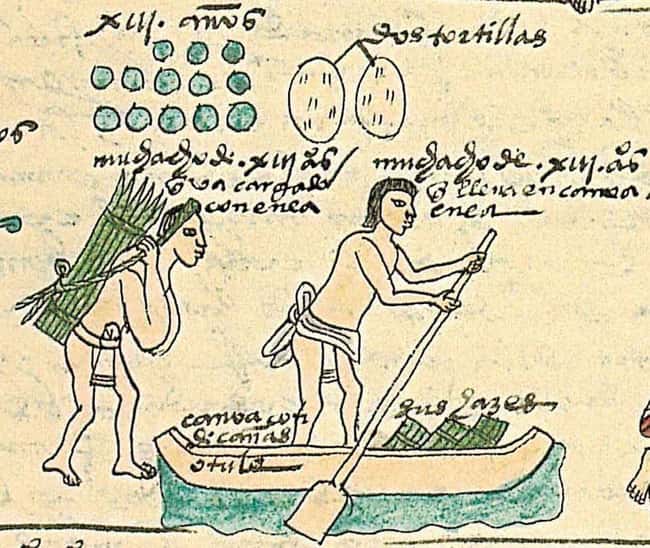 XIII. años
dos tortillas
muchacho de .XIII. aºs
q va cargado
con enea
muchacho de .XIII. aºs
q lleva en canoa
enea
canoa con
cañas
o tule
sus hazes